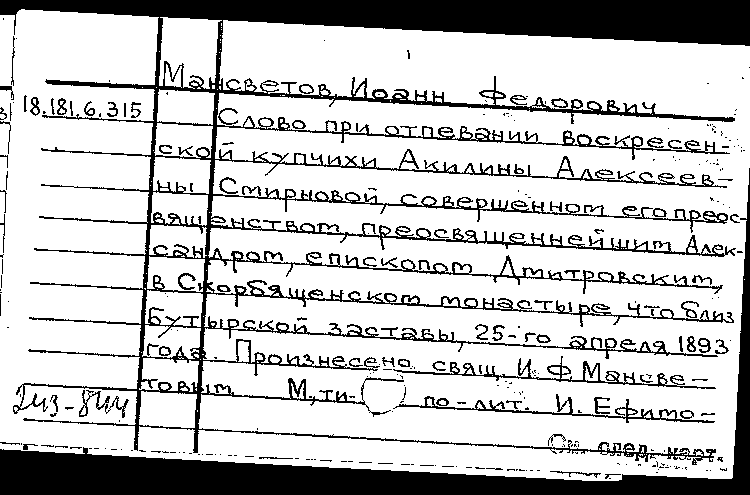 Мансветов, Иоанн Федорович
18.181.6.315
Слово при отпевании воскресен-
ской купчихи Акилины Алексеев-
ны Смирновой, совершенном его преос-
вященством, преосвященнейшим Алек-
сандром, епископом Дмитровским,
в Скорбященском монастыре, что близ
Бутырской заставы, 25-го апреля 1893
года. Произнесено свящ. И. Ф Мансве-
товым. М, ти- по-лит. И. Ефимо-
243-844
См. след. карт.